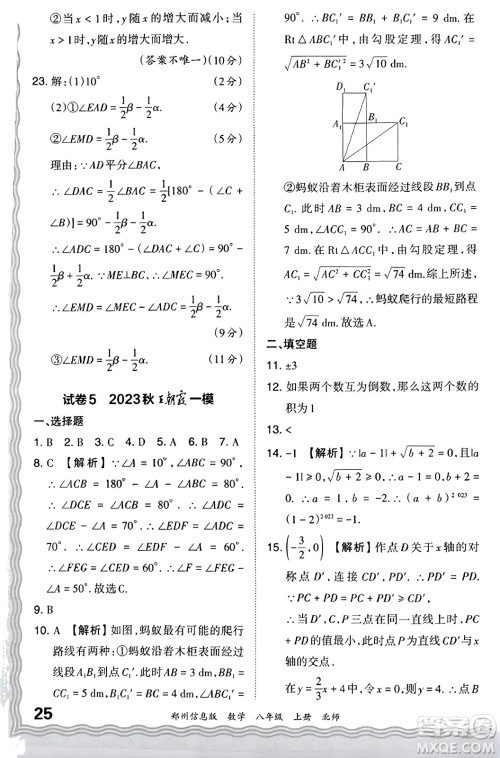 x < 1 时, y 随 x 的增大而减小; 当
x > 1 时, y 随 x 的增大而增大.
(答案不唯一)(10分)
23. 解: (1)10° (2分)
(2)①∠EAD = 1/2 β - 1/2 α. (4分)
②∠EMD = 1/2 β - 1/2 α. (5分)
理由: ∵ AD 平分∠BAC,
∴ ∠DAC = 1/2 ∠BAC = 1/2 [180° - (∠B +
∠C)] = 90° - 1/2 β - 1/2 α.
∴ ∠ADC = 180° - ∠DAC - ∠C = 90° +
1/2 β - 1/2 α. ∵ ME⊥BC, ∴ ∠MED = 90°.
∴ ∠EMD = ∠ADC - ∠MED = 1/2 β - 1/2 α.
(9分)
③∠EMD = 1/2 β - 1/2 α. (10分)
试卷5 2023秋王朝霞一模
一、选择题
1. B 2. B 3. D 4. D 5. C 6. B 7. A
8. C 【解析】∵ ∠A = 10°, ∠ABC = 90°,
∴ ∠ACB = 180° - ∠ABC - ∠A = 80°.
∴ ∠DCE = ∠ACB = 80°. ∴ ∠ADC =
∠DCE - ∠A = 70°. ∴ ∠EDF = ∠ADC =
70°. ∴ ∠FEG = ∠EDF - ∠A = 60°.
∴ ∠FEG = ∠CED = 60°. 故选 C
9. B
10. A 【解析】如图, 蚂蚁最有可能的爬行
路线有两种: ①蚂蚁沿着木柜表面经过
线段 A₁B₁ 到 C₁′. ∵ AD = 3 + 6 =
9(dm), DC₁′ = 3 dm, ∠ADC₁′ =
90°, ∴ 由勾股定理, 得 AC₁′ = 在
Rt△ADC₁′ 中, 由勾股定理, 得 AC₁′ =
√(AB² + BC₁′²) = 3√10 dm.
D C₁′
A₁ B₁ C₁
A B C
②蚂蚁沿着木柜表面经过线段 BB₁ 到
C₁. ∵ AB = 3 dm, BC = 4 dm, CC₁ =
5 dm, ∠ACC₁ = 90°, ∴ AC = AB + BC =
7 dm. ∴ 在 Rt△ACC₁ 中, 由勾股定理,
得 AC₁ = √(AC² + CC₁²) = √74 dm.
∵ 3√10 > √74, ∴ 蚂蚁爬行的最短路程
是 √74 dm. 故选 A
二、填空题
11. ±3
12. 如果两个数互为倒数, 那么这两个数的
积为1
13. <
14. -1 【解析】∵ |a - 1| + √(b + 2) = 0,
|a - 1| ≥ 0, √(b + 2) ≥ 0, ∴ a - 1 = 0, b +
2 = 0. ∴ a = 1, b = -2. ∴ (a + b)²⁰²³ =
(1 - 2)²⁰²³ = -1
15. (-3/2, 0) 【解析】作点 D 关于 x 轴的对
称点 D′, 连接 CD′, PD′. ∴ PD = PD′.
∴ PC + PD = PC + PD′ ≥ CD′, 当点 C,
P, D′ 三点在同一直线上时, PC + PD 取
最小值, 最小值为 CD′. ∵ 直线与 x
轴的交点
25
郑州信息版 数学 八年级 上册 北师
作业精灵
MXQE.COM